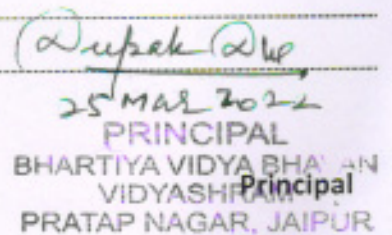 Deepak
25 MAR 2022
PRINCIPAL
BHARTIYA VIDYA BHAVAN
VIDYASHRAM Principal
PRATAP NAGAR, JAIPUR